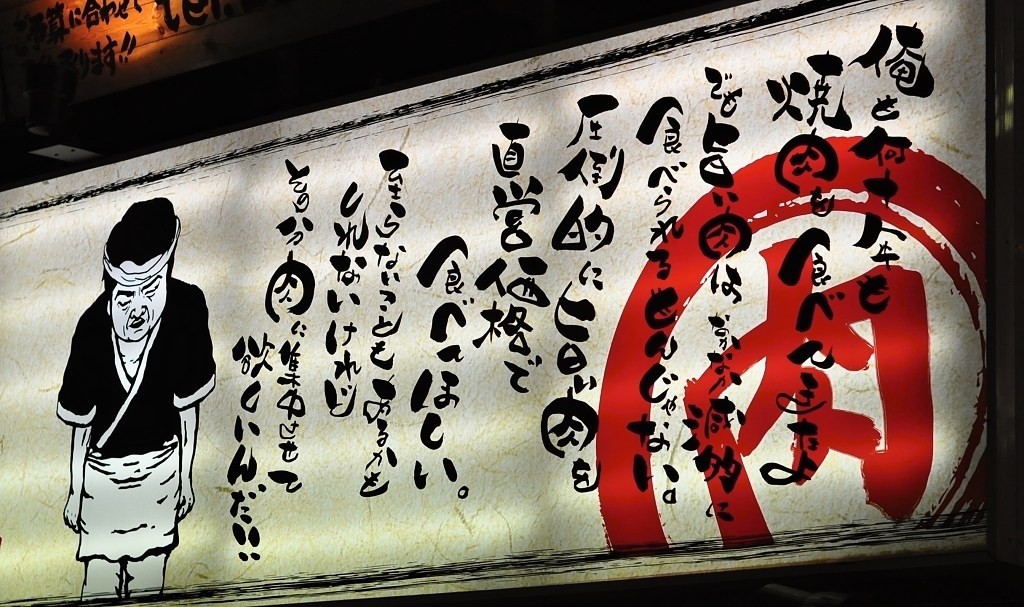 俺も何十年も
焼肉を食べてきたよ
でも旨い肉はなかなか滅多に
食べられるもんじゃない。
圧倒的に旨い肉を
直営価格で
食べてほしい。
至らないことも あるかも
しれないけれど
その分肉に集中させて
欲しいんだ!!
肉
予算に合わせて
ります!!